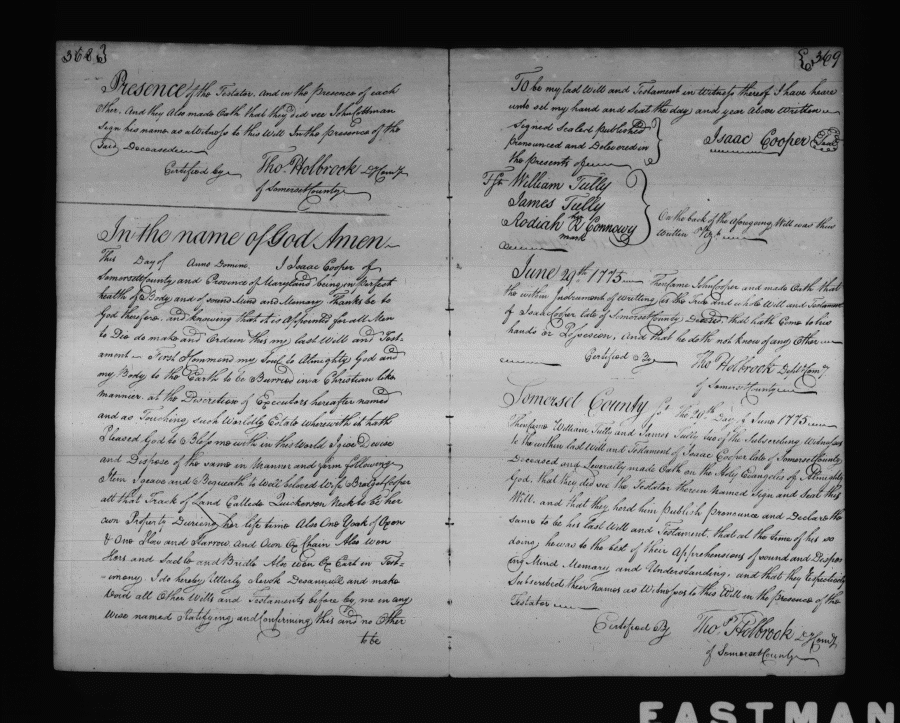 368
Presence of the Testator. And in the presence of each
Other. And they Also made Oath that they did see John Cottman
Sign his name as a Witness to this Will In the presence of the
Said Deceased
Certified by Thos. Holbrook Dy Comy
of Somerset County
In the name of God Amen
This Day of Anno Domine I Isaac Cooper of
Somersett County and Province of Maryland being in Perfect
health of Body and of sound Mind and Memory Thanks be to
God therefore, and knowing that it is Appointed for all Men
to Die do make and Ordain this my last Will and Test-
ament First I Commend my Soul to Almighty God and
my Body to the Earth to be Burried in a Christian like
manner at the Discretion of Executors hereafter named
and as Touching such Worldly Estate wherewith it hath
Pleased God to Bless me with in this World I give Devise
and Dispose of the same in Manner and form following
Item I geave and Bequeath to Well beloved Wife Cooper
all that Track of Land Called Quickerson Neck to be her
own Property Dureing her life time Also One Yoak of Oxon
& One Plow and Harrow And Own Ox Chain Also won
Hors and Sadle and Bridle Also won Ox Cart in Test-
-imony I do hereby Utterly Revok Desannull and make
Void all Other Wills and Testaments before by me in any
Wise named Ratifying and Confirming this and no Other
to be
369
To be my last Will and Testament in Witness thereof I have heare
unto set my hand and Seal the day and year Above Written
Signed Sealed Published
pronounced and Delivered in
the presents of
Isaac Cooper Seal
Test William Tully
James Tully
Rodiah R Connowy
her
mark
On the back of the aforegoing Will was thus
Written Vizt
June 29th 1775 Then came John Cooper and made Oath that
the within Instrument of Writing is the True and whole Will and Testament
of Isaac Cooper late of Somerset County Deceasd. that hath Come to his
hands or Possession, And that he doth not know of any Other
Certified By Thos Holbrook Debty Comy
of Somerset County
Somerset County Sst. The 29th Day of June 1775
Then came William Tully and James Tully two of the Subscribing Witnesses
to the within last Will and Testament of Isaac Cooper late of Somerset County
Deceased and Severally made Oath on the Holy Evangeles of Almighty
God, that they did see the Testator therein Named Sign and Seal this
Will, and that they herd him Publish Pronounce and Declare the
same to be his last Will and Testament, that at the time of his so
doing, he was to the best of their Apprehensions of sound and Dispos
ing Mind, Memary and Understanding, and that they Respectively
Subscribed their names as Witnesses to this Will in the presence of the
Testator
Certified By Thos. Holbrook Dy Comy
of Somerset County
EASTMAN